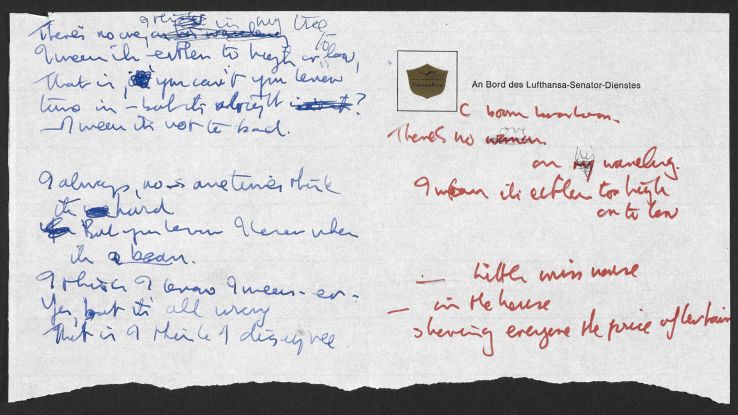 in my tree
There's no one
I mean it's either to high or low,
to
That is, you can't you know
tune in - but it's alright ?
- I mean it's not to bad.
I always, no sometimes think
it's hard
But you know I know when
it's a bean.
I think I know I mean - er -
Yes, but it's all wrong
That is I think I disagree.
Senator
An Bord des Lufthansa-Senator-Dienstes
There's no one
on my waveleng.
I mean it's either too high
or to low
— Little miss
— in the house
showing everyone the price of